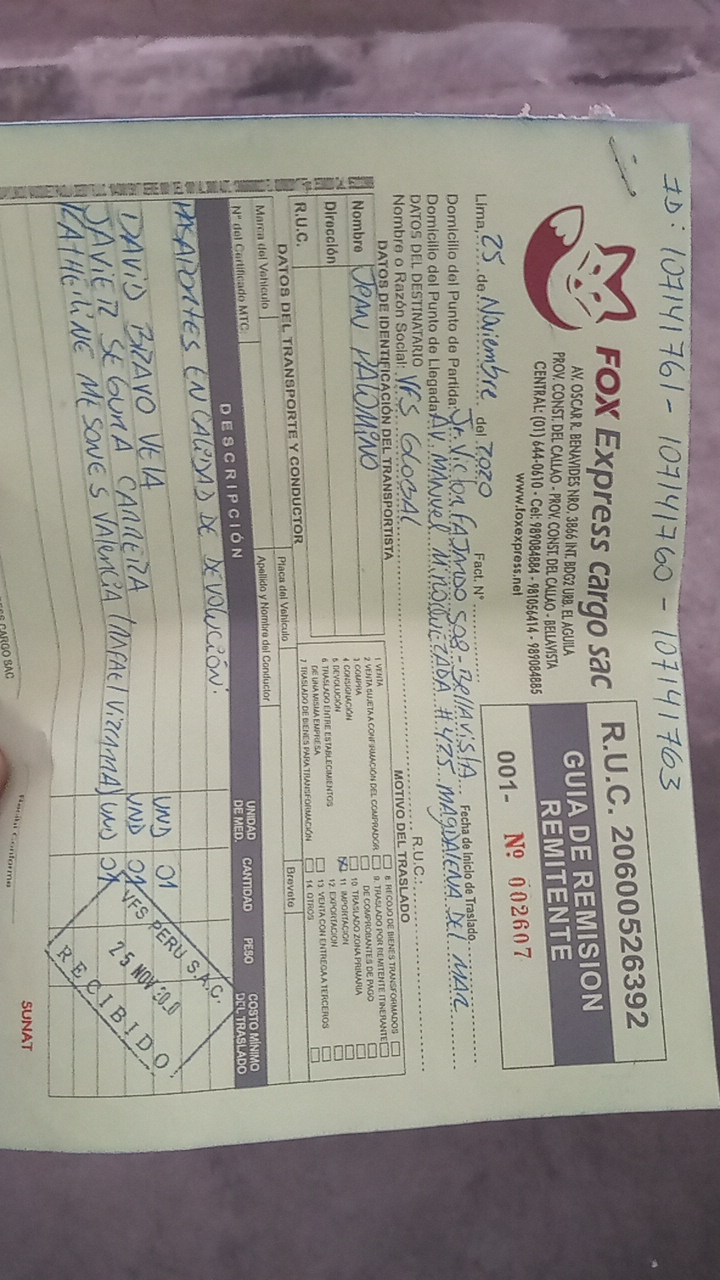 ID: 107141761 - 107141760 - 107141763
FOX Express cargo sac
AV. OSCAR R. BENAVIDES NRO. 3866 INT. BDG2 URB. EL AGUILA
PROV. CONST. DEL CALLAO - PROV. CONST. DEL CALLAO - BELLAVISTA
CENTRAL: (01) 644-0610 - Cel: 989084884 - 981056414 - 989084885
www.foxexpress.net
R.U.C. 20600526392
GUIA DE REMISION
REMITENTE
001- Nº 002607
Lima, 25 de Noviembre del 2020 Fact. N°
Fecha de Inicio de Traslado
Domicilio del Punto de Partida Jr. Victor FAJARDO 508 - BELLAVISTA
Domicilio del Punto de Llegada AV. MANUEL MIROQUEZADA # 475 MAGDALENA DEL MAR
DATOS DEL DESTINATARIO
Nombre o Razón Social: VFS GLOBAL R.U.C.:
DATOS DE IDENTIFICACIÓN DEL TRANSPORTISTA
Nombre JEAN PALOMINO
Dirección
R.U.C.
MOTIVO DEL TRASLADO
1 VENTA
2 VENTA SUJETA A CONFIRMACIÓN DEL COMPRADOR
3 COMPRA
4 CONSIGNACIÓN
5 DEVOLUCIÓN
6 TRASLADO ENTRE ESTABLECIMIENTOS
DE UNA MISMA EMPRESA
7 TRASLADO DE BIENES PARA TRANSFORMACIÓN
8 RECOJO DE BIENES TRANSFORMADOS
9 TRASLADO POR REMITENTE ITINERANTE
DE COMPROBANTES DE PAGO
10 TRASLADO ZONA PRIMARIA
11 IMPORTACION
12 EXPORTACION
13 VENTA CON ENTREGA A TERCEROS
14 OTROS
DATOS DEL TRANSPORTE Y CONDUCTOR
Marca del Vehículo Placa del Vehículo
N° del Certificado MTC: Apellido y Nombre del Conductor Brevete
DESCRIPCIÓN UNIDAD DE MED. CANTIDAD PESO COSTO MÍNIMO DEL TRASLADO
PASAPORTES EN CALIDAD DE DEVOLUCIÓN.
DAVID BRAVO VELA UND 01
JAVIER SEGURA CARRERA UND 01
KATHELINE MESONES VALENCIA UND 01
VFS PERU S.A.C.
25 NOV
RECIBIDO
Recibí Conforme
SUNAT